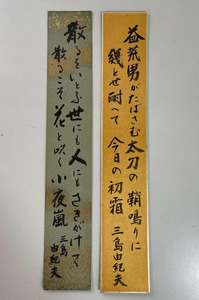 益荒男がたばさむ太刀の鞘鳴りに
幾とせ耐へて今日の初霜
三島由紀夫
散るをいとふ世にも人にもさきがけて
散るこそ花と吹く小夜嵐
三島
由紀夫